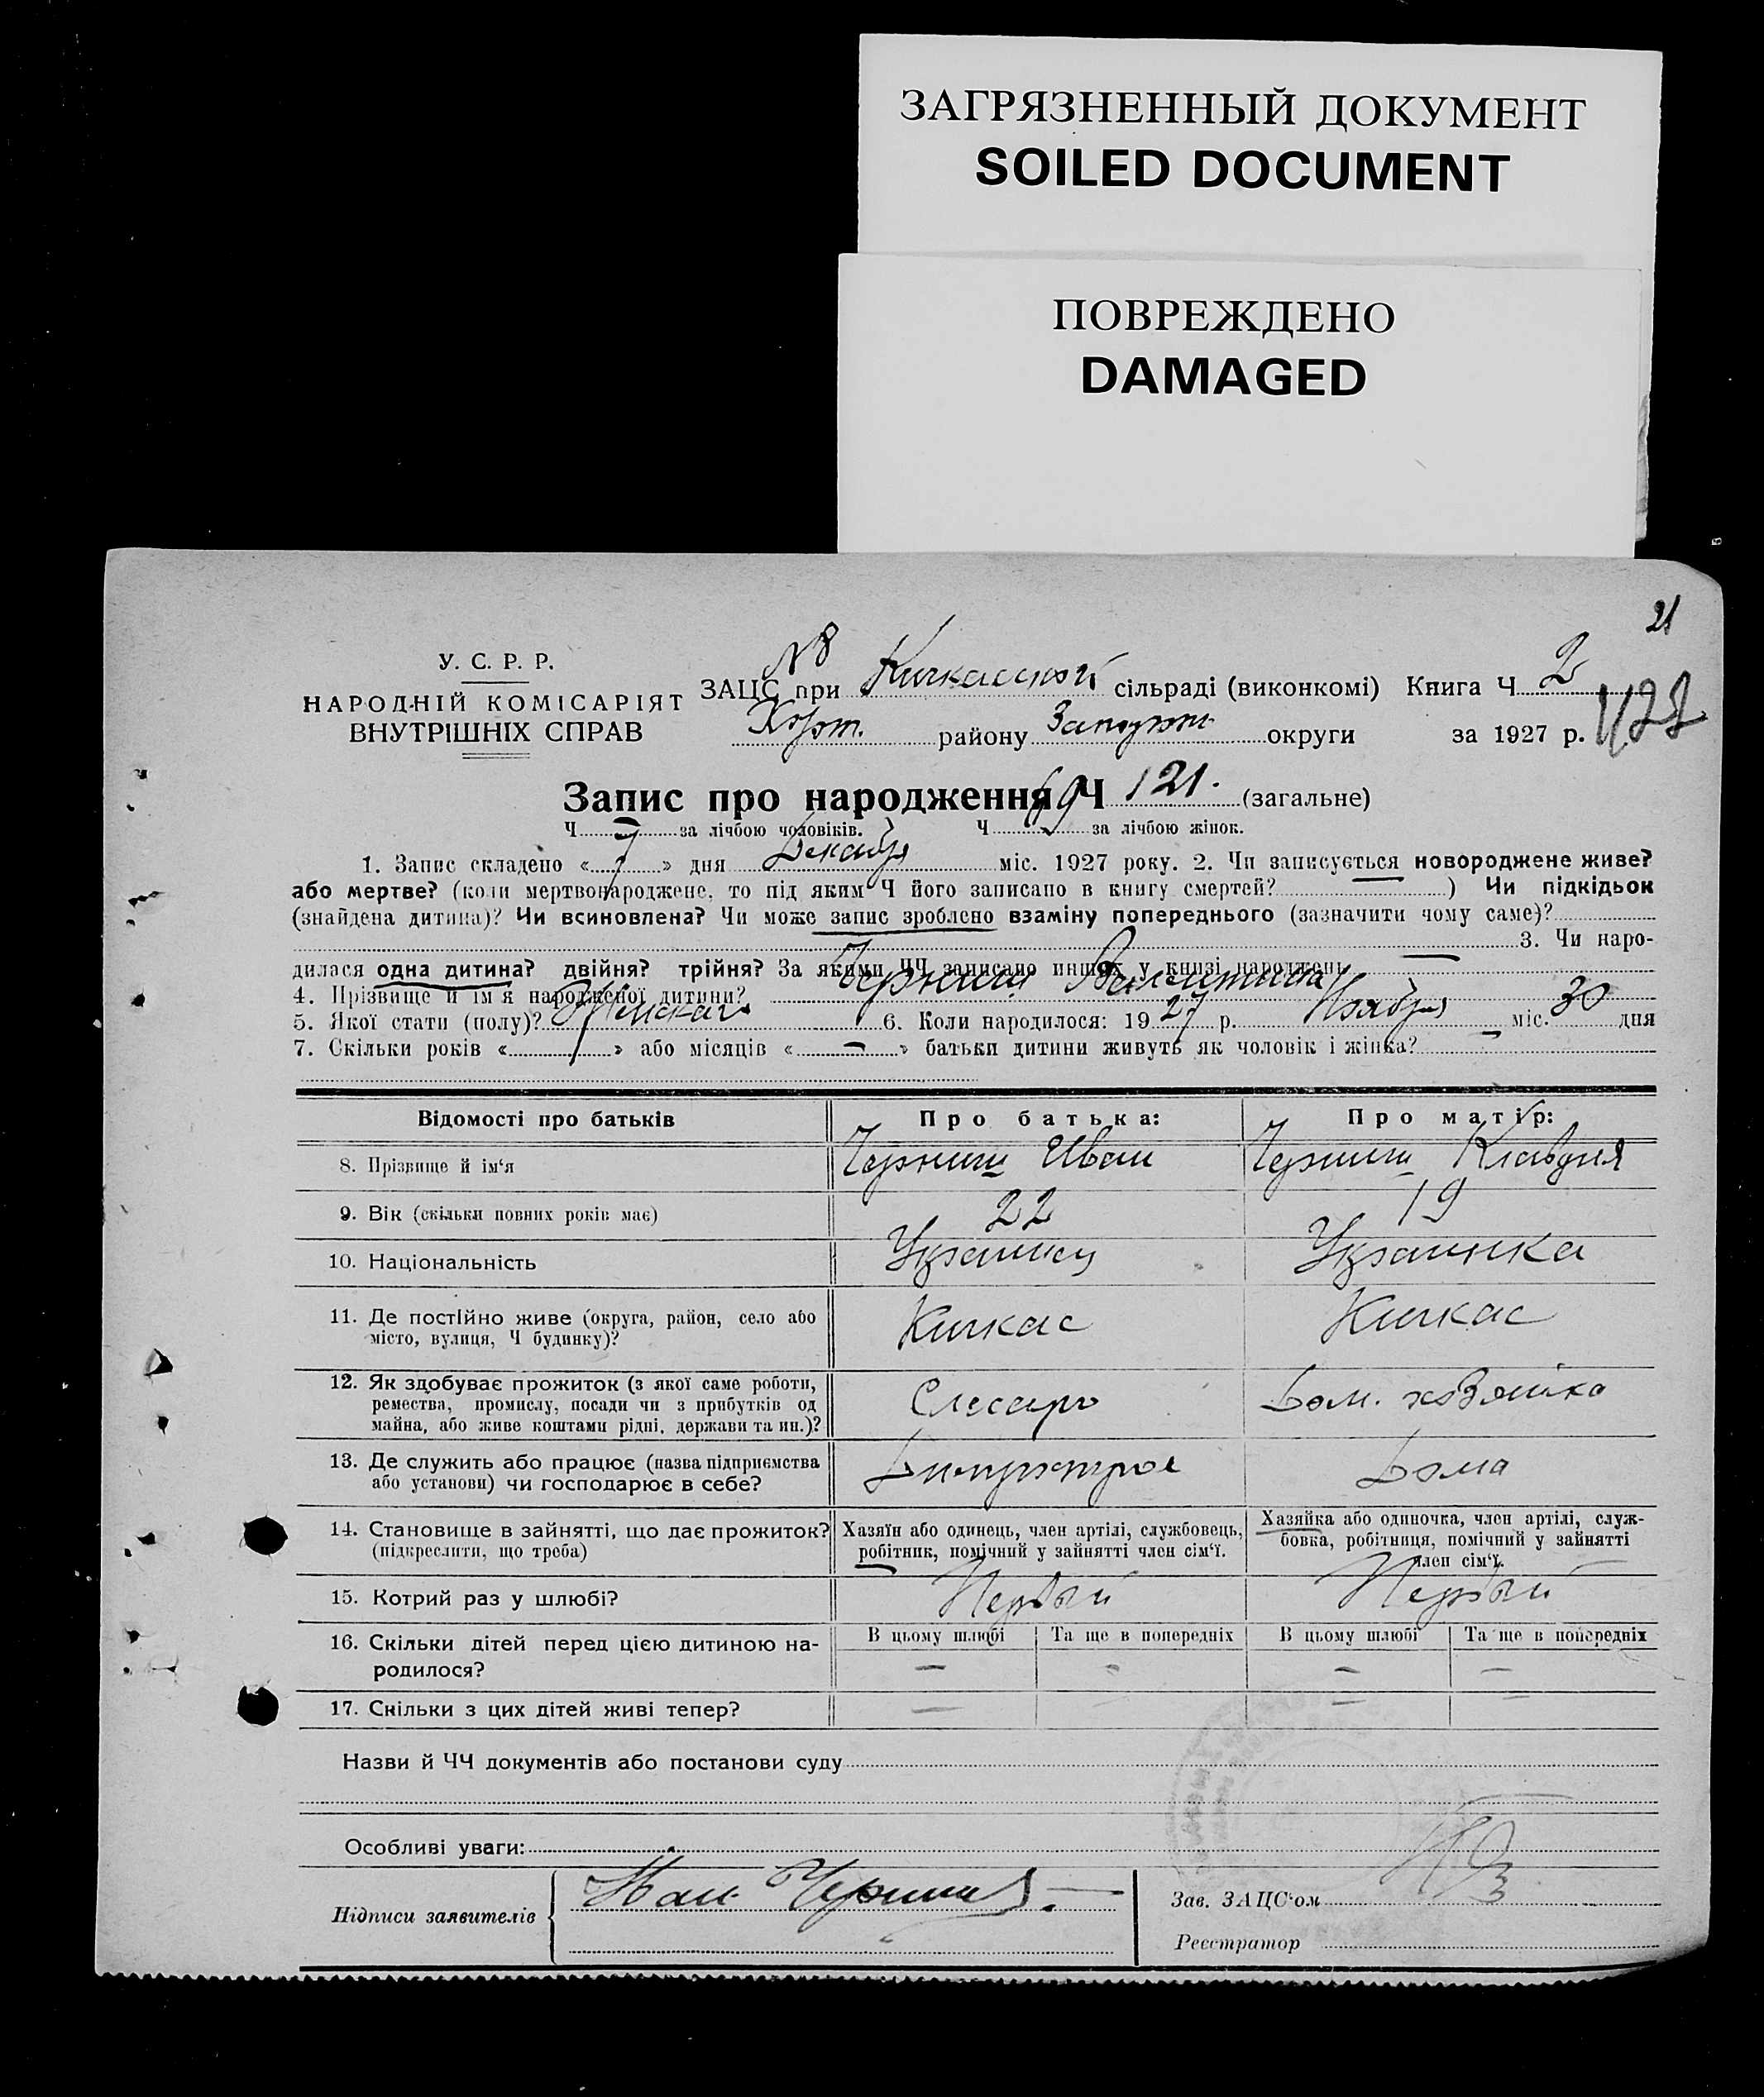 ЗАГРЯЗНЕННЫЙ ДОКУМЕНТ
SOILED DOCUMENT
ПОВРЕЖДЕНО
DAMAGED
21
У. С. Р. Р.
НАРОДНІЙ КОМІСАРІЯТ
ВНУТРІШНІХ СПРАВ
№8
ЗАЦС при Кичкасской сільраді (виконкомі) Книга Ч 2
Хорт. району Запорож округи за 1927 р.
Запис про народження Ч 121. (загальне)
Ч — за лічбою чоловіків. Ч 69 за лічбою жінок.
1. Запис складено « 7 » дня Декабря міс. 1927 року. 2. Чи записується новороджене живе?
або мертве? (коли мертвонароджене, то під яким Ч його записано в книгу смертей? — ) Чи підкідьок
(знайдена дитина)? Чи всиновлена? Чи може запис зроблено взаміну попереднього (зазначити чому саме)?
3. Чи наро-
дилася одна дитина? двійня? трійня? За якими ЧЧ записано инших у книзі народжень —
4. Прізвище й ім'я народженої дитини? Черниш Валентина
5. Якої стати (полу)? Женская 6. Коли народилося: 1927 р. Ноября міс. 30 дня
7. Скільки років « 1 » або місяців « — » батьки дитини живуть як чоловік і жінка? —
Відомості про батьків Про батька: Про матір:
8. Прізвище й ім‘я Черниш Иван Черниш Клавдия
9. Вік (скільки повних років має) 22 19
10. Національність Украинец Украинка
11. Де постійно живе (округа, район, село або Кичкас Кичкас
місто, вулиця, Ч будинку)?
12. Як здобуває прожиток (з якої саме роботи,
ремества, промислу, посади чи з прибутків од Слесарь Дом. хозяйка
майна, або живе коштами рідні, держави та ин.)?
13. Де служить або працює (назва підприємства Днипрострое Дома
або установи) чи господарює в себе?
14. Становище в зайнятті, що дає прожиток? Хазяїн або одинець, член артілі, службовець, Хазяйка або одиночка, член артілі, служ-
(підкреслити, що треба) робітник, помічний у зайнятті член сім‘ї. бовка, робітниця, помічний у зайнятті
член сім‘ї.
15. Котрий раз у шлюбі? Первый Первый
16. Скільки дітей перед цією дитиною на- В цьому шлюбі Та ще в попередніх В цьому шлюбі Та ще в попередніх
родилося? — — — —
17. Скільки з цих дітей живі тепер? — — — —
Назви й ЧЧ документів або постанови суду
Особливі уваги:
Підписи заявителів Иван Черниш
Зав. ЗАЦС‘ом
Реєстратор